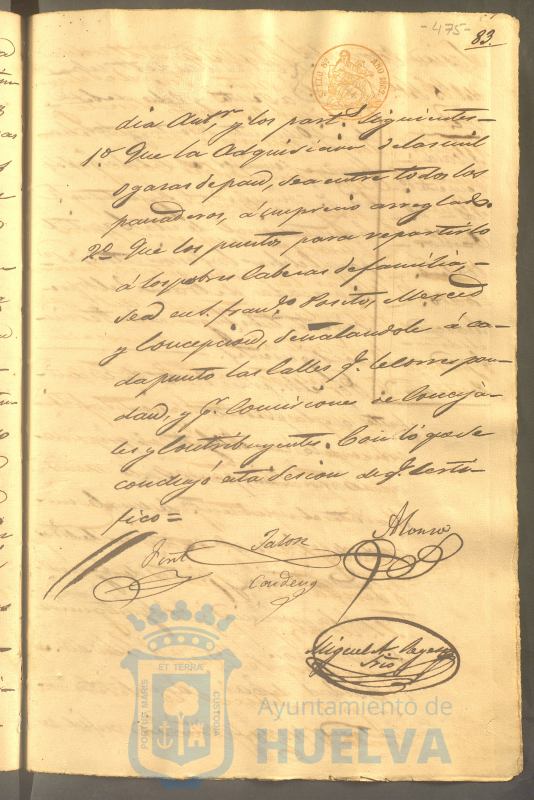 -475-
83.
dia Antr. y los part.s siguientes-
1º Que la adquisicion de las mil
ogazas de pan, sea entre todos los
panaderos, á un precio arreglado.
2º Que los puntos para repartirlo
á los pobres Cabezas de familia,-
sea en S. Fran.co Posito, Merced
y Concepcion, señalandole á ca-
da punto las Calles q.e le correspon-
dan, y p.r Comisiones de Conceja-
les y Contribuyentes. Con lo que se
concluyó esta Sesion de q.e certi-
fico=
Alonso
Font
Miguel A.
Srio
PORTUS MARIS
ET TERRÆ
CUSTODIA
Ayuntamiento de
HUELVA